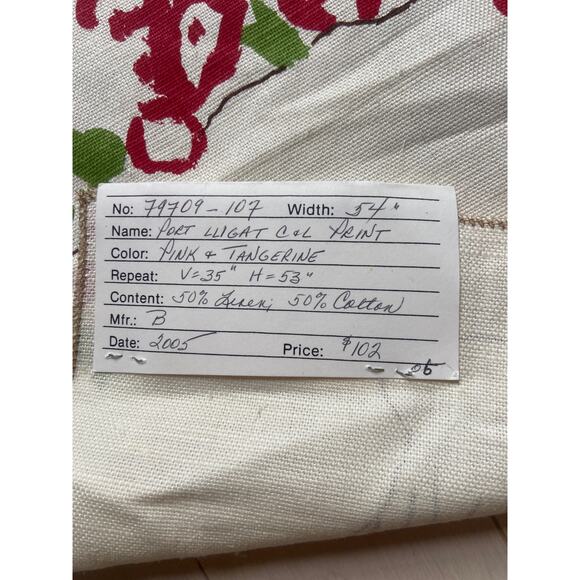 No: 79709-107 Width: 54"
Name: Port Lligat C&L Print
Color: Pink & Tangerine
Repeat: V=35" H=53"
Content: 50% Linen; 50% Cotton
Mfr.: B
Date: 2005 Price: $102
06